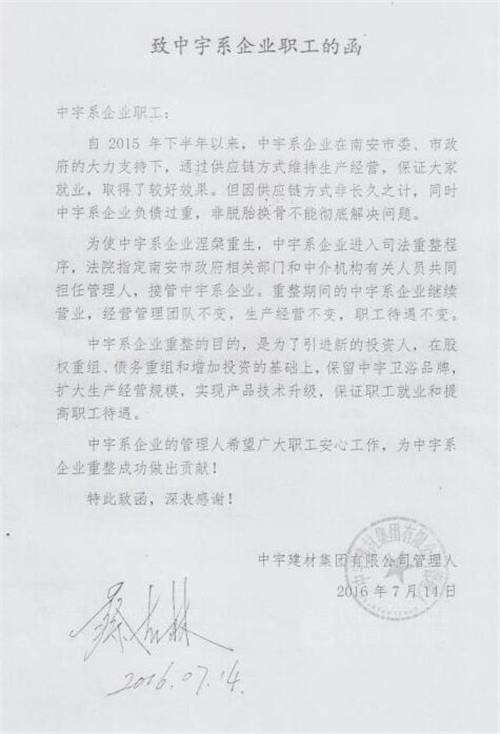 致中宇系企业职工的函
中宇系企业职工：
自 2015 年下半年以来，中宇系企业在南安市委、市政
府的大力支持下，通过供应链方式维持生产经营，保证大家
就业，取得了较好效果。但因供应链方式非长久之计，同时
中宇系企业负债过重，非脱胎换骨不能彻底解决问题。
为使中宇系企业涅槃重生，中宇系企业进入司法重整程
序，法院指定南安市政府相关部门和中介机构有关人员共同
担任管理人，接管中宇系企业。重整期间的中宇系企业继续
营业，经营管理团队不变，生产经营不变，职工待遇不变。
中宇系企业重整的目的，是为了引进新的投资人，在股
权重组、债务重组和增加投资的基础上，保留中宇卫浴品牌，
扩大生产经营规模，实现产品技术升级，保证职工就业和提
高职工待遇。
中宇系企业的管理人希望广大职工安心工作，为中宇系
企业重整成功做出贡献！
特此致函，深表感谢！
中宇建材集团有限公司管理人
2016 年 7 月 14 日
2016.07.14.